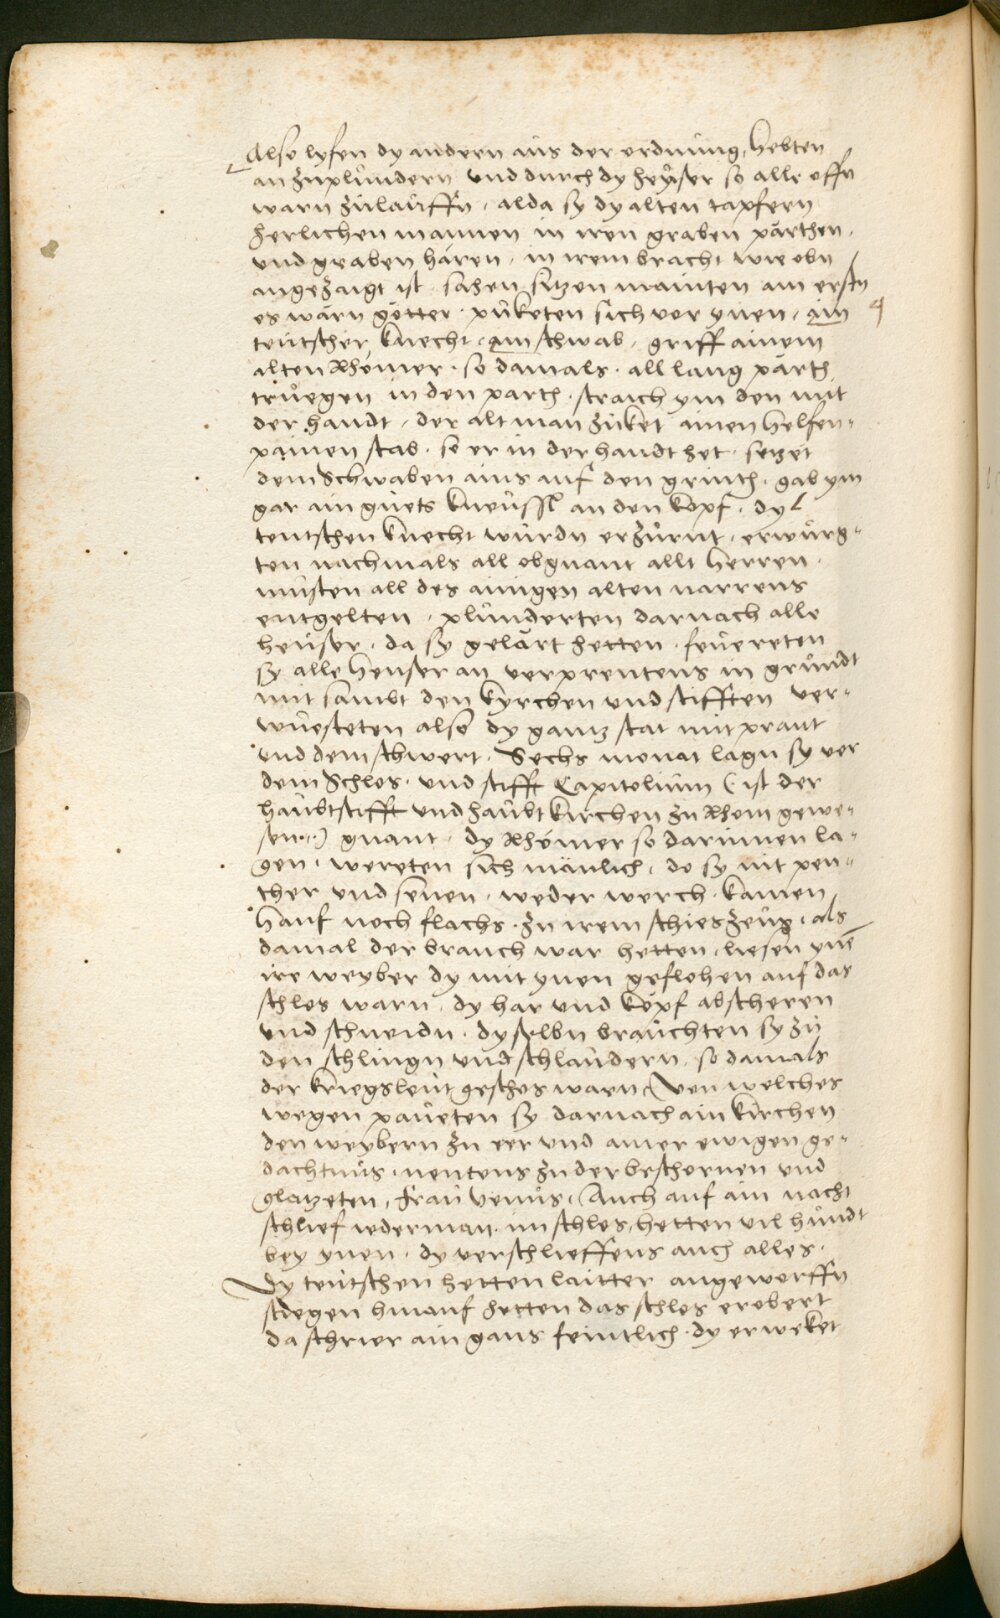 Also lyfen dy andern aus der ordnung, hebten
an zuplündern und durch dy heyser so alle offn
warn zulauffn, alda sy dy alten tapfern
herlichen mannen in iren graben pärthen
und graben hären, in irem bracht wie obn
angezaigt ist sahen sitzen mainten am erstn
es wärn götter, puketen sich vor ynen, ain
teutscher knecht, ain schwab, griff ainem
alten Rhömer, so damals all lang pärth
truegen in den parth, straich ym den mit
der handt, der alt man zuket ainen helfen-
painen stab, so er in der handt het, setzet
dem Schwaben ains auf den grinth, gab ym
gar ain guets kneussl an den kopf, dy
teutschen knecht wurdn erzürnt, erwürg-
ten nachmals all obgnant allt herren,
musten all des ainigen alten narrens
entgelten, plünderten darnach alle
heuser, da sy gelärt hetten, feuereten
sy alle heuser an verprentens in grundt
mit sambt den kyrchen und stifften ver-
wüesteten also dy gantz stat mit prant
und dem schwert. Sechs monat lagn sy vor
dem Schlos, und stifft Capitolium (ist der
haubtstifft und haubtkirchen zu Rhom gewe-
sen) gnant, dy Rhömer so darinnen la-
gen, wereten sich mänlich, do sy nit pen-
ther und senen, weder werch kamen
hanf noch flachs, zu irem schieszeug, als
damal der brauch war hetten, liesen yne
ire weyber dy mit ynen geflohen auf das
schlos warn, dy har und köpf abscheren
und schneidn, dyselbn brauchten sy zu
den schlingn und schlaudern, so damals
der kriegsleut geschos warn. Von welches
wegen paueten sy darnach ain kirchen
den weybern zu eer und ainer ewigen ge-
dachtnus, nentens zu der beschornen und
glatzeten, frau Venus, Auch auf ain nacht
schlief iederman im schlos, hetten vil hundt
bey ynen, dy verschlieffens auch alles,
Dy teutschen hetten laitter angeworffn
stiegen hinauf hetten das schlos erobert
da schrier ain gans feintlich, dy erweket